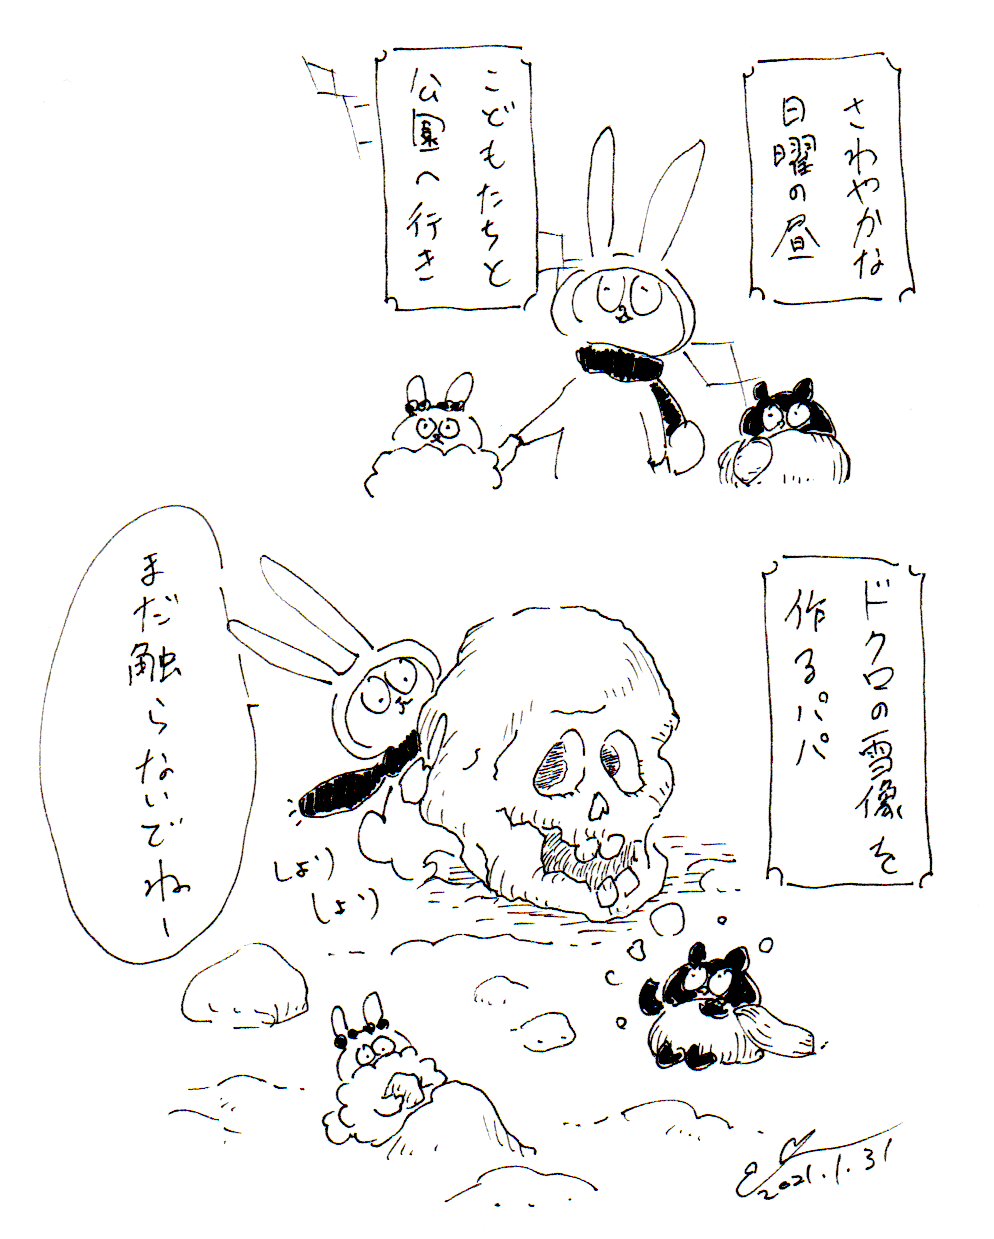 さわやかな
日曜の昼
こどもたちと
公園へ行き
ドクロの雪像を
作るパパ
まだ触らないでねー
しょり
しょり
2021.1.31